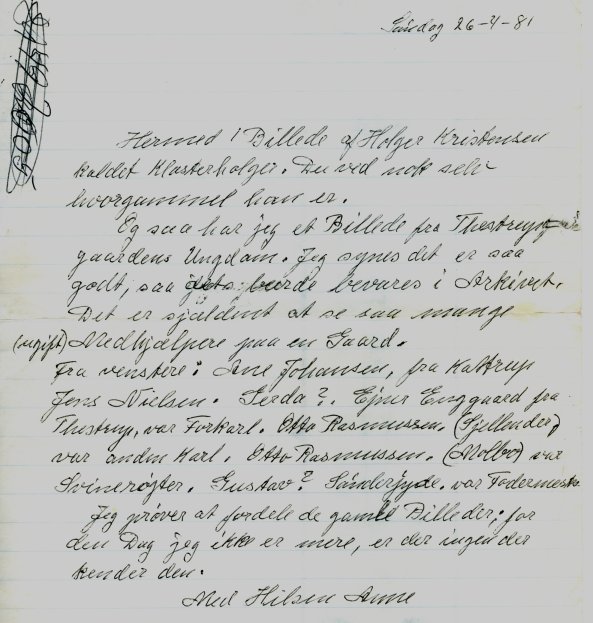 Søndag 26-4-81
Hermed 1 Billede af Holger Kristensen
kaldet Klosterholger. Du ved nok selv
hvorgammel han er.
Og saa har jeg et Billede fra Thestrup
gaardens Ungdom. Jeg synes det er saa
godt, saa burde bevares i Arkivet.
Det er sjældent at se saa mange
(ugift) Medhjælpere paa en Gaard.
Fra venstere: Ane Johansen, fra Kattrup
Jens Nielsen. Gerda?. Ejner Enggaard fra
Thestrup, var Forkarl. Otto Rasmussen. (Sjellender)
var anden Karl. Otto Rasmussen. (Molbo) var
Svinerøgter. Gustav? Sønderjyde. var Fodermester
Jeg prøver at fordele de gamle Billeder; for
den Dag jeg ikke er mere, er der ingen der
kender den.
Med Hilsen Anne